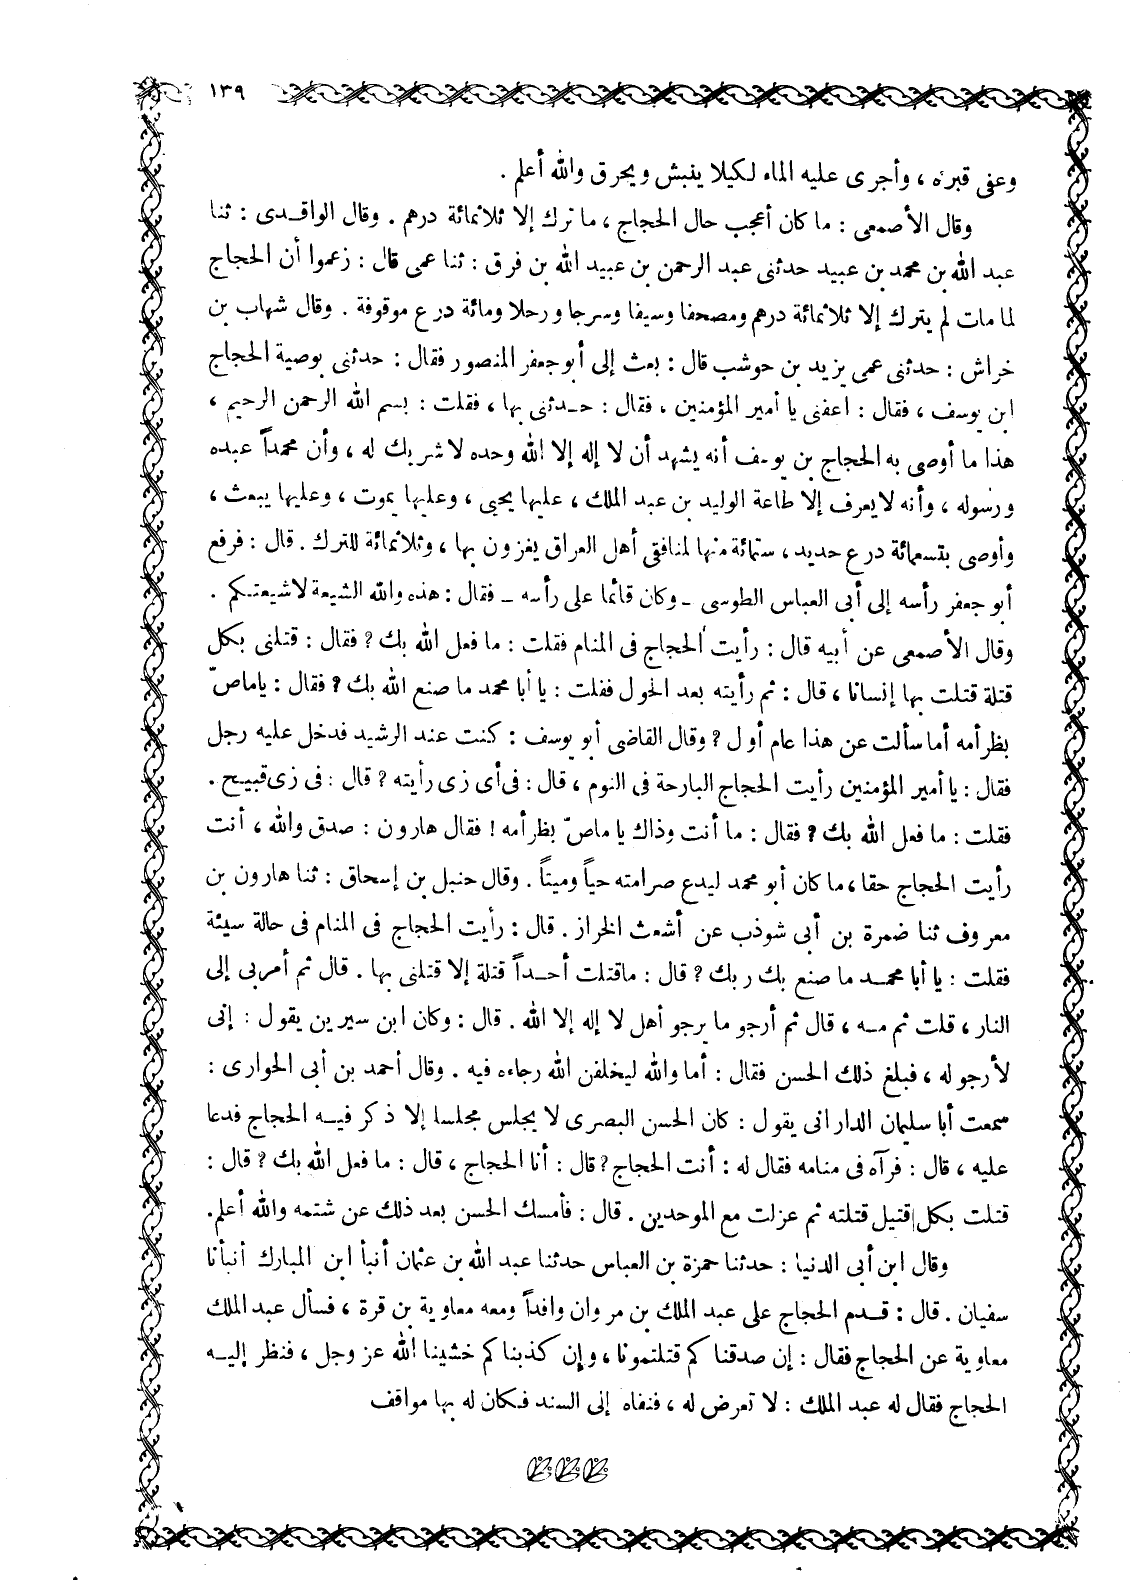 ١٣٩
وعفى قبره ، وأجرى عليه الماء لكيلا ينبش ويحرق والله أعلم .
وقال الأصمعى : ما كان أعجب حال الحجاج ، ما ترك إلا ثلاثمائة درهم . وقال الواقدى : ثنا
عبد الله بن محمد بن عبيد حدثنى عبد الرحمن بن عبيد الله بن فرق : ثنا عمى قال : زعموا أن الحجاج
لما مات لم يترك إلا ثلاثمائة درهم ومصحفا وسيفا وسرجا ورحلا ومائة درع موقوفة . وقال شهاب بن
خراش : حدثنى عمى يزيد بن حوشب قال : بعث إلى أبو جعفر المنصور فقال : حدثنى بوصية الحجاج
ابن يوسف ، فقال : اعفنى يا أمير المؤمنين ، فقال : حدثنى بها ، فقلت : بسم الله الرحمن الرحيم ،
هذا ما أوصى به الحجاج بن يوسف أنه يشهد أن لا إله إلا الله وحده لا شريك له ، وأن محمداً عبده
ورسوله ، وأنه لا يعرف إلا طاعة الوليد بن عبد الملك ، عليها يحيى ، وعليها يموت ، وعليها يبعث ،
وأوصى بتسعمائة درع حديد ، ستمائة منها لمنافقى أهل العراق يغزون بها ، وثلاثمائة للترك . قال : فرفع
أبو جعفر رأسه إلى أبى العباس الطوسى ـ وكان قائما على رأسه ـ فقال : هذه والله الشيعة لا شيعتكم .
وقال الأصمعى عن أبيه قال : رأيت الحجاج فى المنام فقلت : ما فعل الله بك ? فقال : قتلنى بكل
قتلة قتلت بها إنسانا ، قال : ثم رأيته بعد الحول فقلت : يا أبا محمد ما صنع الله بك ? فقال : ياماصّ
بظر أمه أما سألت عن هذا عام أول ? وقال القاضى أبو يوسف : كنت عند الرشيد فدخل عليه رجل
فقال : يا أمير المؤمنين رأيت الحجاج البارحة فى النوم ، قال : فى أى زى رأيته ? قال : فى زى قبيح .
فقلت : ما فعل الله بك ? فقال : ما أنت وذاك يا ماصّ بظر أمه ! فقال هارون : صدق والله ، أنت
رأيت الحجاج حقا ، ما كان أبو محمد ليدع صرامته حياً وميتاً . وقال حنبل بن إسحاق : ثنا هارون بن
معروف ثنا ضمرة بن أبى شوذب عن أشعث الخراز . قال : رأيت الحجاج فى المنام فى حالة سيئة
فقلت : يا أبا محمد ما صنع بك ربك ? قال : ماقتلت أحداً قتلة إلا قتلنى بها . قال ثم أمر بى إلى
النار ، قلت ثم مه ، قال ثم أرجو ما يرجو أهل لا إله إلا الله . قال : وكان ابن سيرين يقول : إنى
لأرجو له ، فبلغ ذلك الحسن فقال : أما والله ليخلفن الله رجاءه فيه . وقال أحمد بن أبى الحوارى :
سمعت أبا سليمان الدارانى يقول : كان الحسن البصرى لا يجلس مجلسا إلا ذكر فيه الحجاج فدعا
عليه ، قال : فرآه فى منامه فقال له : أنت الحجاج ? قال : أنا الحجاج ، قال : ما فعل الله بك ? قال :
قتلت بكل قتيل قتلته ثم عزلت مع الموحدين . قال : فأمسك الحسن بعد ذلك عن شتمه والله أعلم .
وقال ابن أبى الدنيا : حدثنا حمزة بن العباس حدثنا عبد الله بن عثمان أنبأ ابن المبارك أنبأنا
سفيان . قال : قدم الحجاج على عبد الملك بن مروان وافداً ومعه معاوية بن قرة ، فسأل عبد الملك
معاوية عن الحجاج فقال : إن صدقناكم قتلتمونا ، وإن كذبناكم خشينا الله عز وجل ، فنظر إليه
الحجاج فقال له عبد الملك : لا تعرض له ، فنفاه إلى السند فكان له بها مواقف